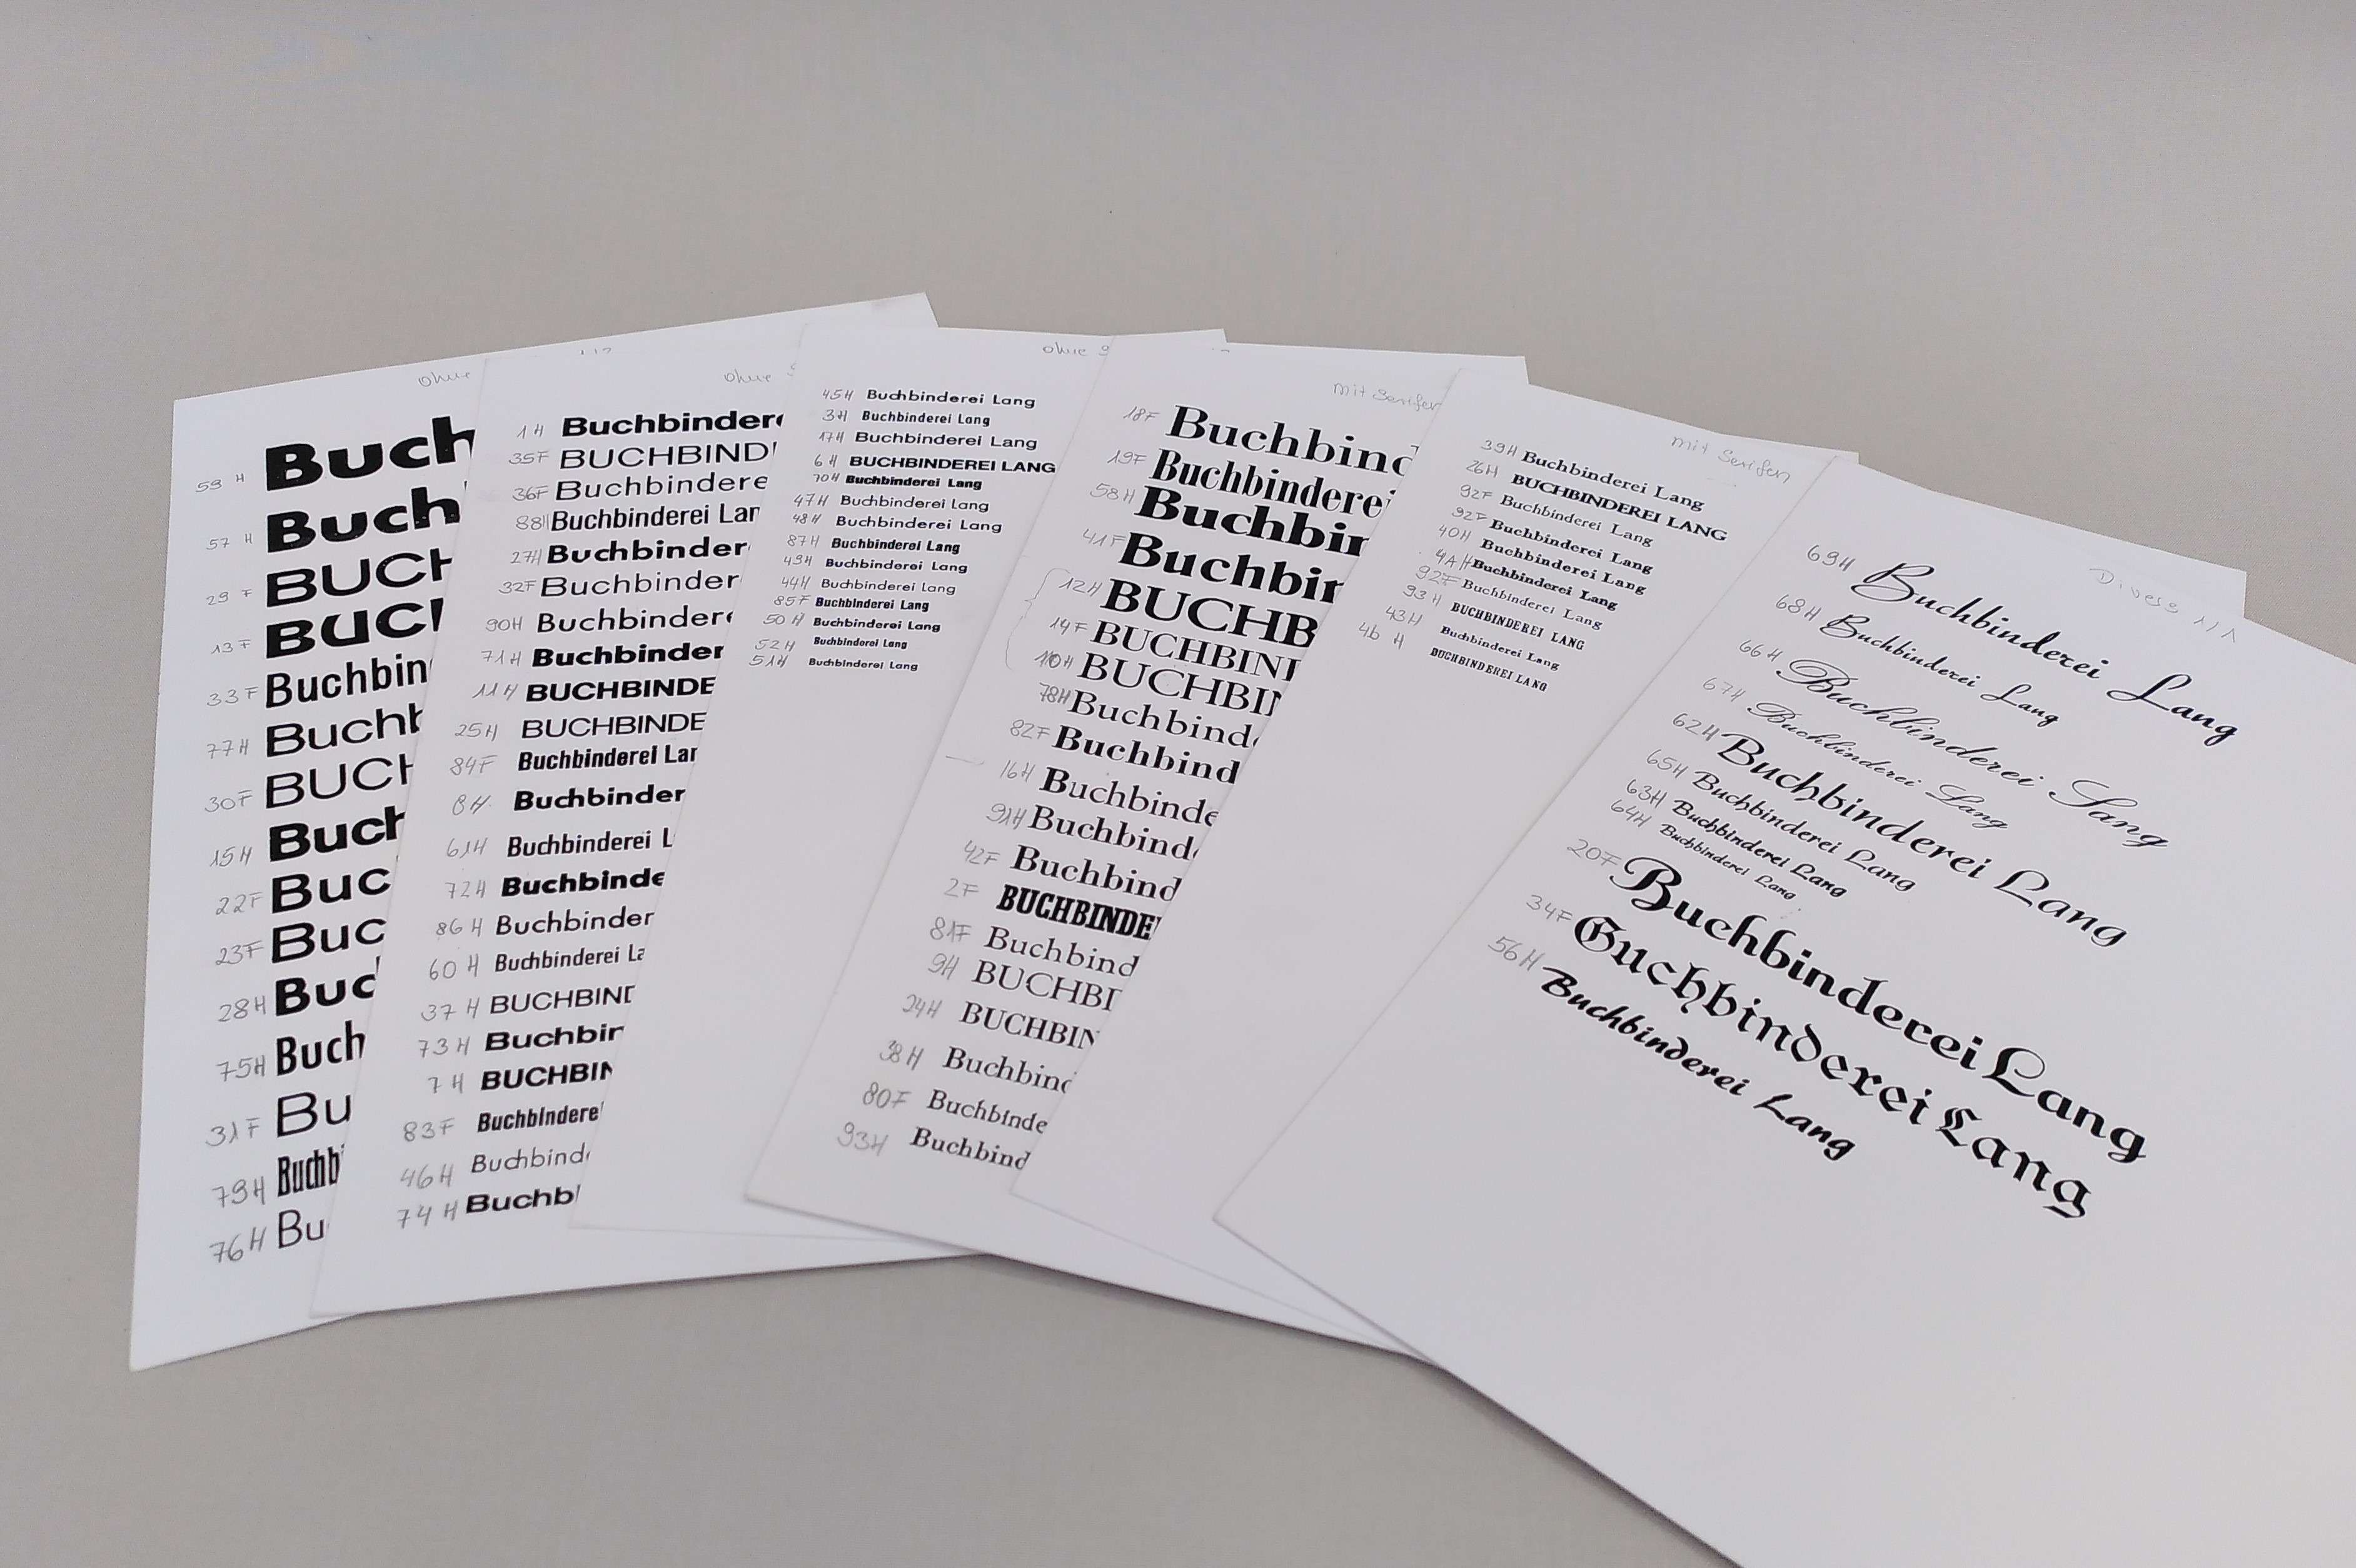 ohne
59 H Buch
57 H Buch
29 F BUCH
13 F BUCH
33 F Buchbin
77H Buchb
30F BUCH
15H Buch
22F Buc
23F Buc
28H Buc
75H Buch
31F Bu
79H Buchb
76H Bu
ohne
1 H Buchbindere
35F BUCHBINDI
36F Buchbindere
88H Buchbinderei Lan
27H Buchbinder
32F Buchbinder
90H Buchbinder
71H Buchbinder
11H BUCHBINDE
25H BUCHBINDE
84F Buchbinderei Lan
8H Buchbinder
61H Buchbinderei L
72H Buchbinde
86 H Buchbinder
60 H Buchbinderei La
37 H BUCHBIND
73 H Buchbin
7 H BUCHBIN
83F Buchbindere
46H Buchbind
74 H Buchb
ohne S
45H Buchbinderei Lang
3H Buchbinderei Lang
17H Buchbinderei Lang
6H BUCHBINDEREI LANG
70H Buchbinderei Lang
47H Buchbinderei Lang
48H Buchbinderei Lang
87H Buchbinderei Lang
49H Buchbinderei Lang
44H Buchbinderei Lang
85F Buchbinderei Lang
50 H Buchbinderei Lang
52H Buchbinderei Lang
51H Buchbinderei Lang
mit Serifen
18F Buchbind
19F Buchbinderei
58H Buchbin
41F Buchbin
12H BUCHB
14F BUCHBIN
10H BUCHBIN
78H Buchbind
82F Buchbind
16H Buchbinde
91H Buchbind
42F Buchbind
2F BUCHBINDE
81F Buchbind
9H BUCHBI
24H BUCHBIN
38 H Buchbind
80F Buchbinde
93H Buchbind
mit Serifen
39H Buchbinderei Lang
26H BUCHBINDEREI LANG
92F Buchbinderei Lang
92F Buchbinderei Lang
40H Buchbinderei Lang
4A H Buchbinderei Lang
92F Buchbinderei Lang
93 H BUCHBINDEREI LANG
43H Buchbinderei Lang
4b H BUCHBINDEREI LANG
Divese 1/1
69H Buchbinderei Lang
68H Buchbinderei Lang
66H Buchbinderei Lang
67H Buchbinderei Lang
62H Buchbinderei Lang
65H Buchbinderei Lang
63H Buchbinderei Lang
64H Buchbinderei Lang
20F Buchbinderei Lang
34F Buchbinderei Lang
56H Buchbinderei Lang